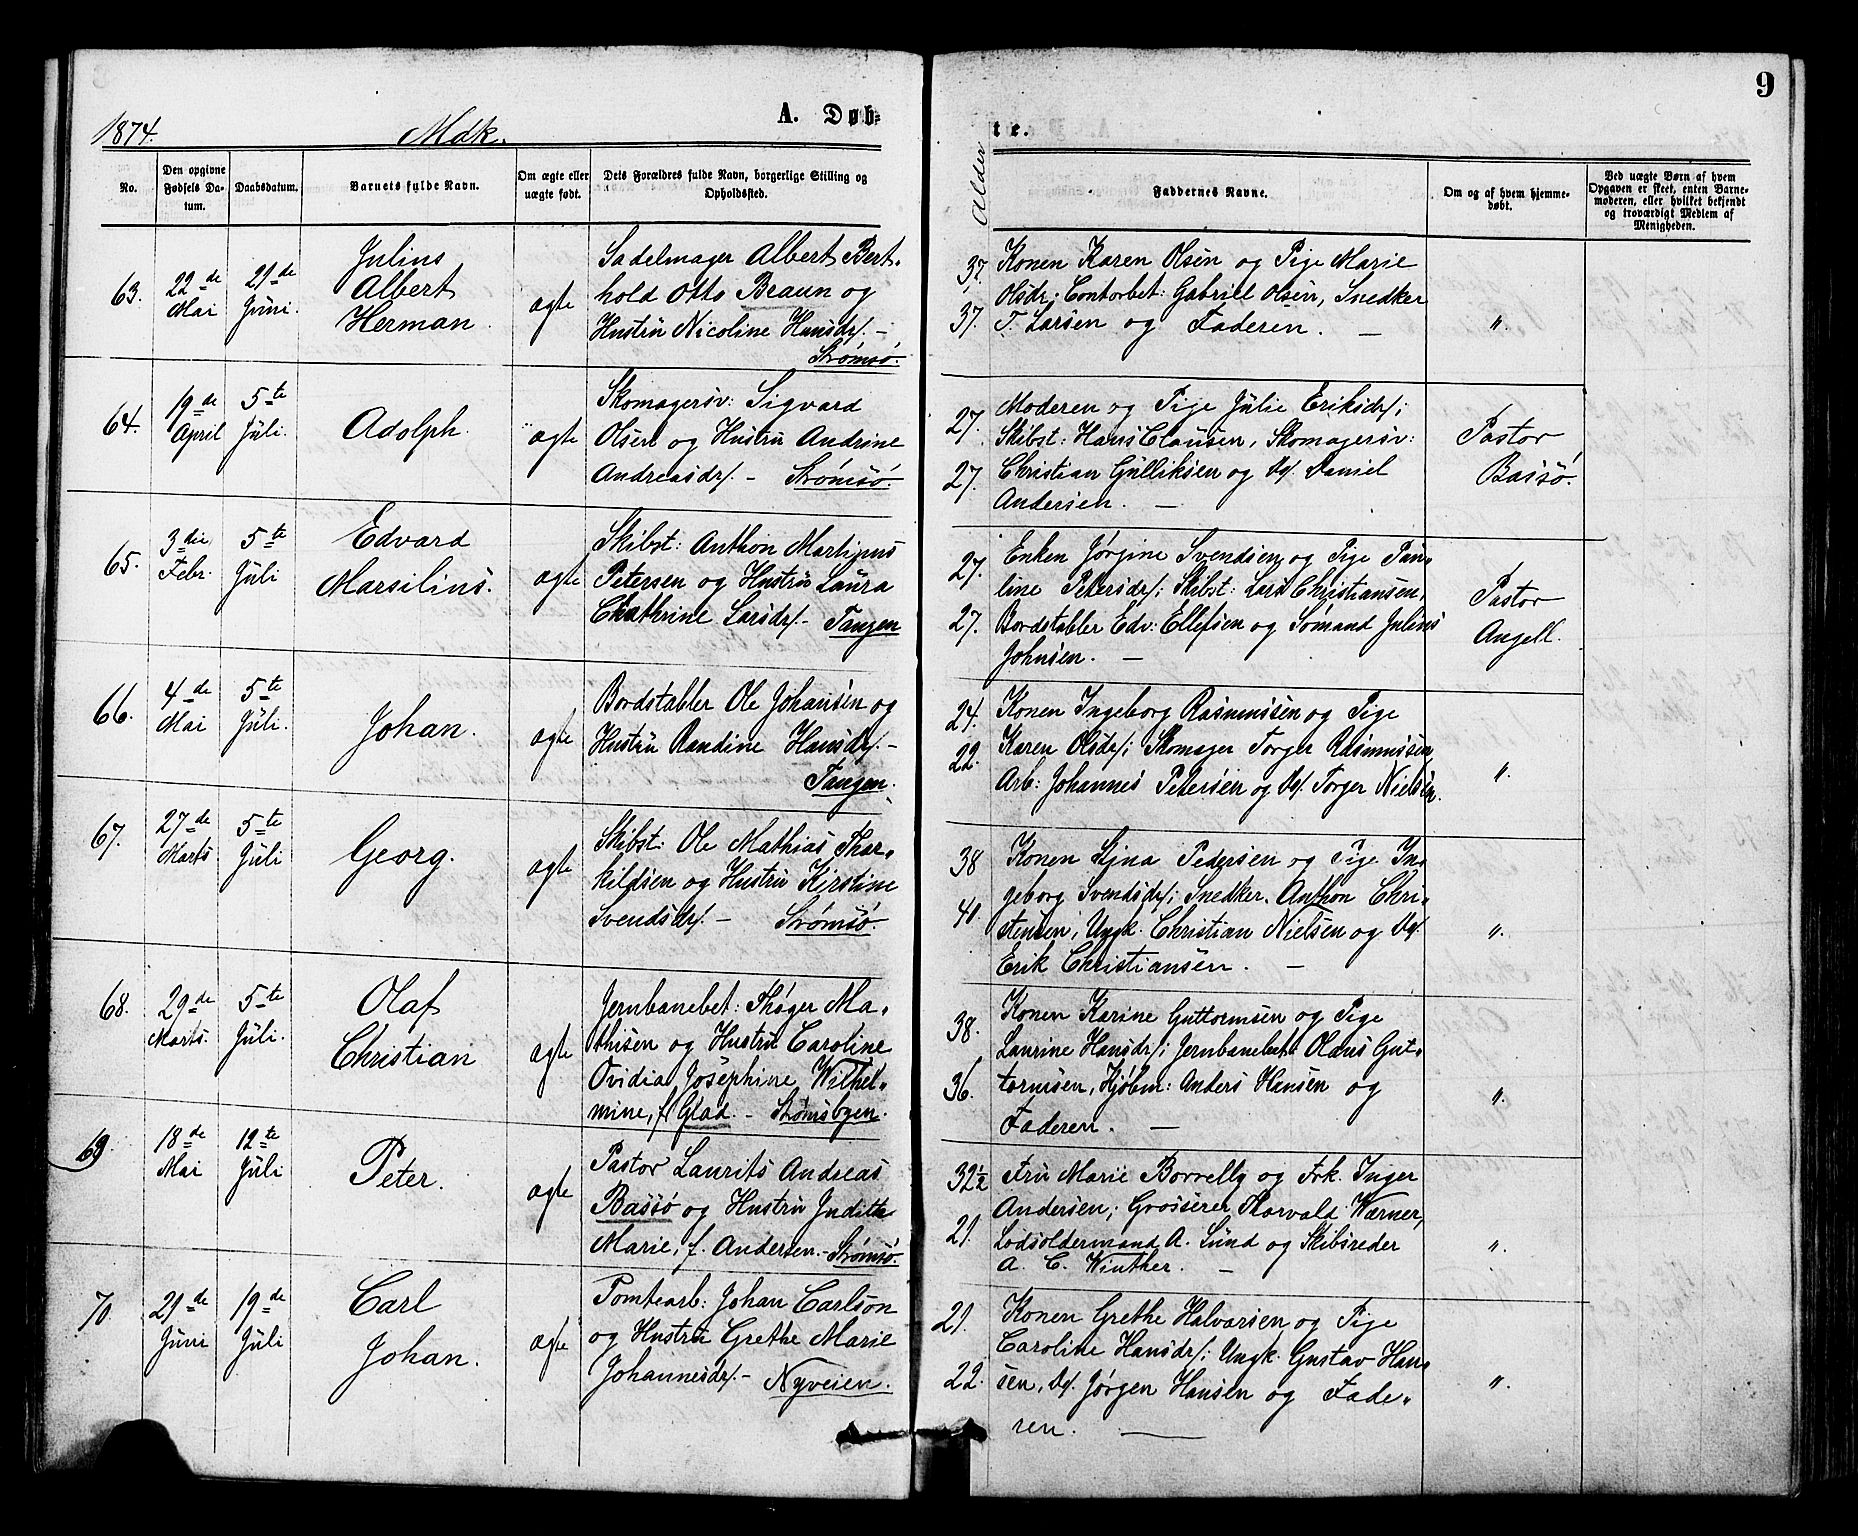 9
A. Døb=
te.
1874.
Mdk.
No.
Den opgivne
Fødsels Da-
tum.
Daabsdatum.
Barnets fulde Navn.
Om ægte eller
uægte født.
Dets Forældres fulde Navn, borgerlige Stilling og
Opholdssted.
Alder
Faddernes Navne.
Om og af hvem hjemme-
døbt.
Ved uægte Børn af hvem
Opgaven er skeet, enten Barne-
moderen, eller hvilket bekjendt
og troværdigt Medlem af
Menigheden.
63.
22de
Mai
21de
Juni.
Julius
Albert
Herman.
ægte
Sadelmager Albert Bert-
hold Otto Braun og
Hustru Nicoline Hansdr. -
Strømsø.
37.
37.
Konen Karen Olsen og Pige Marie
Olsdr; Contorbet: Gabriel Olsen, Snedker
T. Larsen og Faderen. —
"
64.
19de
April
5te
Juli.
Adolph.
ægte
Skomagersv: Sigvard
Olsen og Hustru Andrine
Andreasdr. - Strømsø.
27.
27.
Moderen og Pige Julie Eriksdr;
Skibst: Hans Clausen, Skomagersv:
Christian Gulliksen og Do. Daniel
Andersen. —
Pastor
Bassø.
65.
3die
Febr.
5te
Juli
Edvard
Marsilius.
ægte
Skibst: Anthon Martinus
Petersen og Hustru Laura
Chathrine Larsdr. - Tangen
27.
27.
Enken Jørgine Svendsen og Pige Pau-
line Petersdr; Skibst: Lars Christiansen,
Bordstabler Edv: Ellefsen og Sømand Julius
Johnsen. —
Pastor
Angell.
66.
4de
Mai
5te
Juli.
Johan.
ægte
Bordstabler Ole Johansen og
Hustru Randine Hansdr. -
Tangen.
24.
22.
Konen Ingeborg Rasmussen og Pige
Karen Olsdr; Skomager Torger Rasmussen,
Arb: Johannes Petersen og Do. Torger Nielsen.
"
67.
27de
Marts
5te
Juli
Georg.
ægte
Skibst: Ole Mathias Thor-
kildsen og Hustru Kirstine
Svendsdr. - Strømsø.
38
41.
Konen Stina Pedersen og Pige In-
geborg Svendsdr; Snedker. Anthon Chri-
stensen; Ungk. Christian Nielsen og Do.
Erik Christiansen. —
"
68.
29de
Marts.
5te
Juli.
Olaf
Christian
ægte
Jernbanebet: Thøger Ma-
thisen og Hustru Caroline
Ovidia Josephine Wilhel-
mine, f. Glad. - Strømsbyen.
38.
36.
Konen Karine Guttormsen og Pige
Laurine Hansdr; Jernbanebet: Olaus Gut-
tormsen, Kjøbm: Anders Hansen og
Faderen. —
"
69.
18de
Mai
12te
Juli
Peter.
ægte
Pastor Laurits Andreas
Bassø og Hustru Juditta
Marie, f. Andersen. - Strømsø.
32½
21.
Fru Marie Borrelly og Frk. Inger
Andersen; Grosserer Thorvald Wærner,
Lodsoldermand A. Lund og Skibsreder
A. C. Winther. —
"
70.
21de
Juni
19de
Juli
Carl
Johan.
ægte
Tomtearb: Johan Carlson
og Hustru Grethe Marie
Johannesdr. - Nyveien.
21.
22.
Konen Grethe Halvorsen og Pige
Caroline Hansdr; Ungk. Gustav Han-
sen, Do. Jørgen Hansen og Fade-
ren. —
"